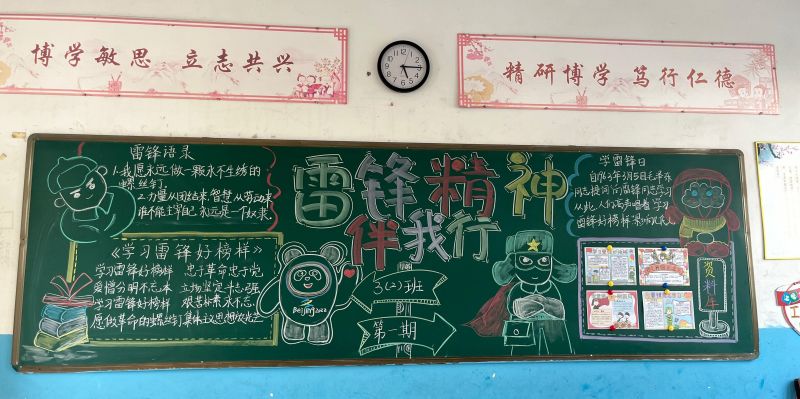 博学敏思 立志共兴
精研博学 笃行仁德
雷锋语录
1.我愿永远做一颗永不生锈的
螺丝钉.
2.力量从团结来,智慧从劳动来
《学习雷锋好榜样》
学习雷锋好榜样 忠于革命忠于党
爱憎分明不忘本 立场坚定
学习雷锋好榜样
愿做革命的螺丝钉 集体主义思想
雷锋精神
伴我行
Beijing2022
3(二)班
第一期
学雷锋日
自1963年3月5日毛泽东
同志提词"向雷锋同志学习"
从此,人们高声唱着"学习
雷锋好榜样
资料库